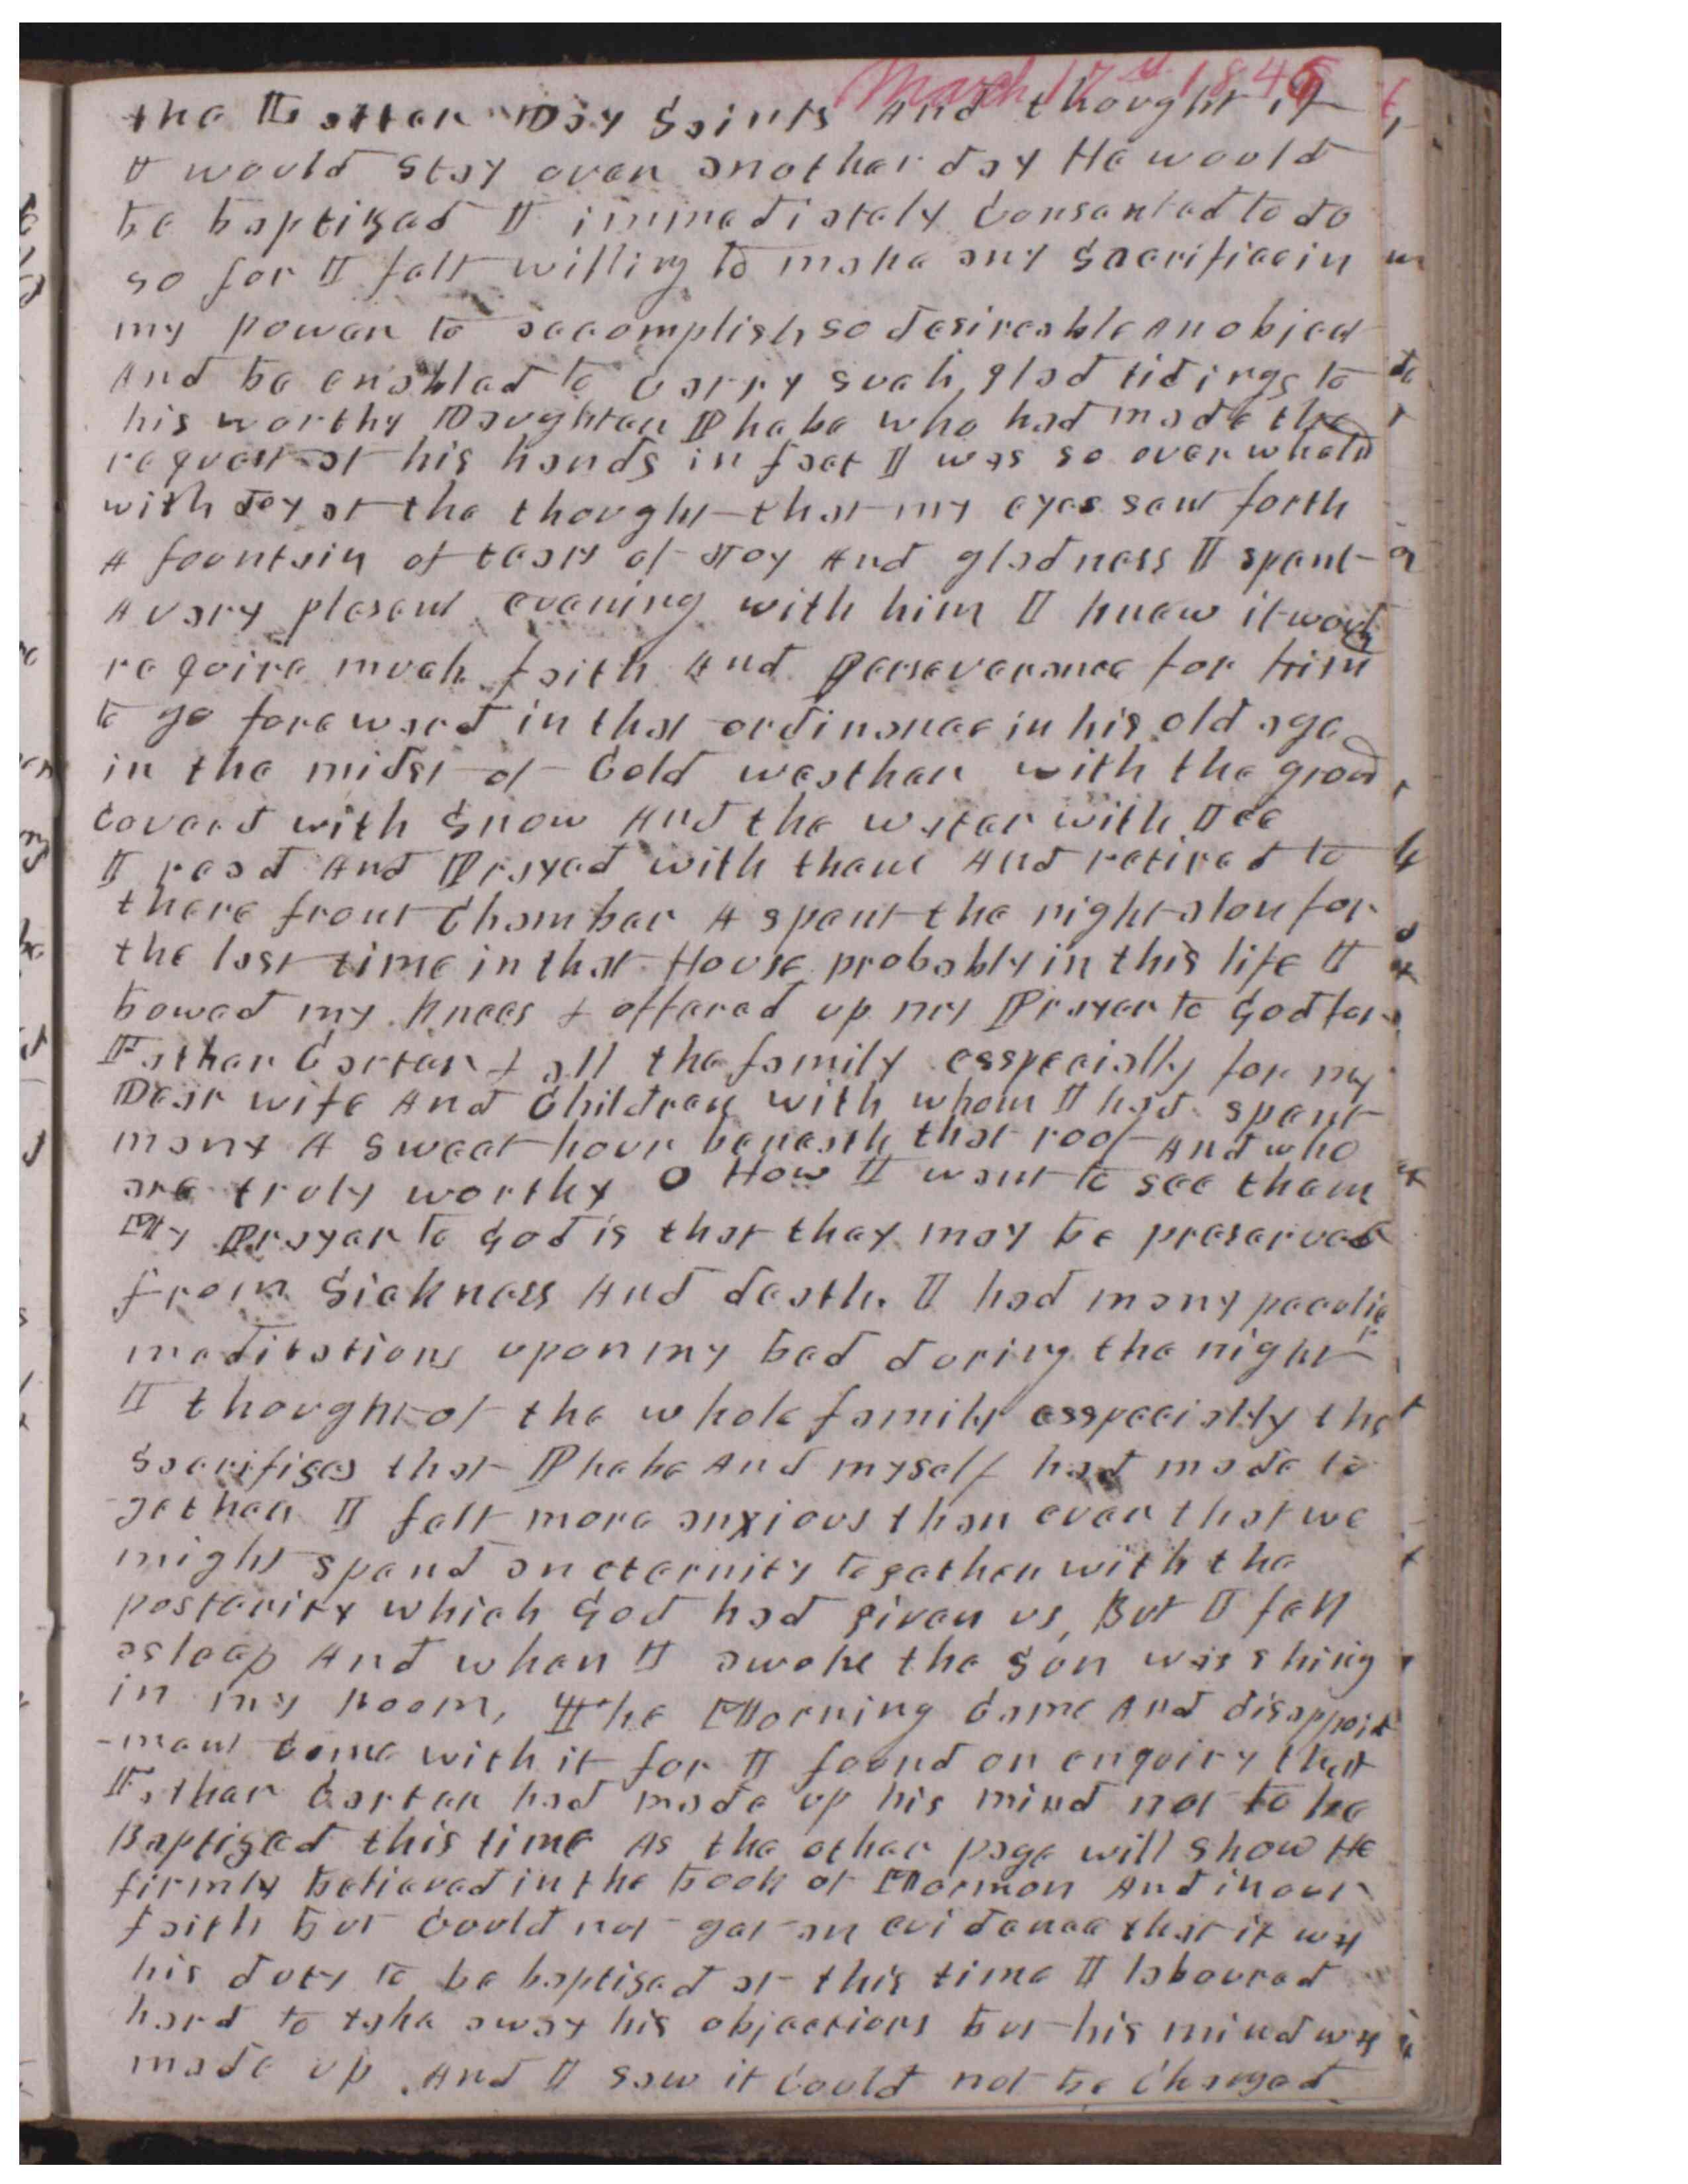 March 17th 1846
the Latter Day Saints And thought if
I would stay over another day He would
be baptized I immediately Consented to do
so for I felt willing to make any Sacrifice in
my power to accomplish so desireable An object
And be enabled to Carry such glad tidings to
his worthy Daughter Phebe who had made the
request at his hands in fact I was so overwhelmd
with Joy at the thought that my eyes sent forth
A fountain of tears of Joy And gladness I spent
A very plesent evening with him I knew it would
require much faith And Perseverance for him
to go foreward in that ordinance in his old age
in the midst of Cold weather with the ground
Coverd with Snow And the water with Ice
I read And Prayed with them And retired to
there front Chamber & spent the night alon for
the last time in that House probably in this life I
bowed my knees & offered up my Prayer to God for
Father Carter & all the family esspecially for my
Dear wife And Children with whom I had spent
many A sweet hour beneath that roof And who
are truly worthy O How I want to see them
My Prayer to God is that they may be preserved
from Sickness And death. I had many peculier
meditations upon my bed during the night
I thought of the whole family esspecially the
Sacrifices that Phebe And myself had made to
gether I felt more anxious than ever that we
might spend an eternity together with the
posterity which God had given us, But I fell
asleep And when I awoke the Sun was shing
in my Room, The Morning Came And disappoint
-ment Came with it for I found on enquiry that
Father Carter had made up his mind not to be
Baptized this time As the other page will show He
firmly believed in the book of Mormon And in our
faith but Could not get an evidence that it was
his duty to be baptised at this time I laboured
hard to take away his objections but his mind was
made up And I saw it Could not be Changed